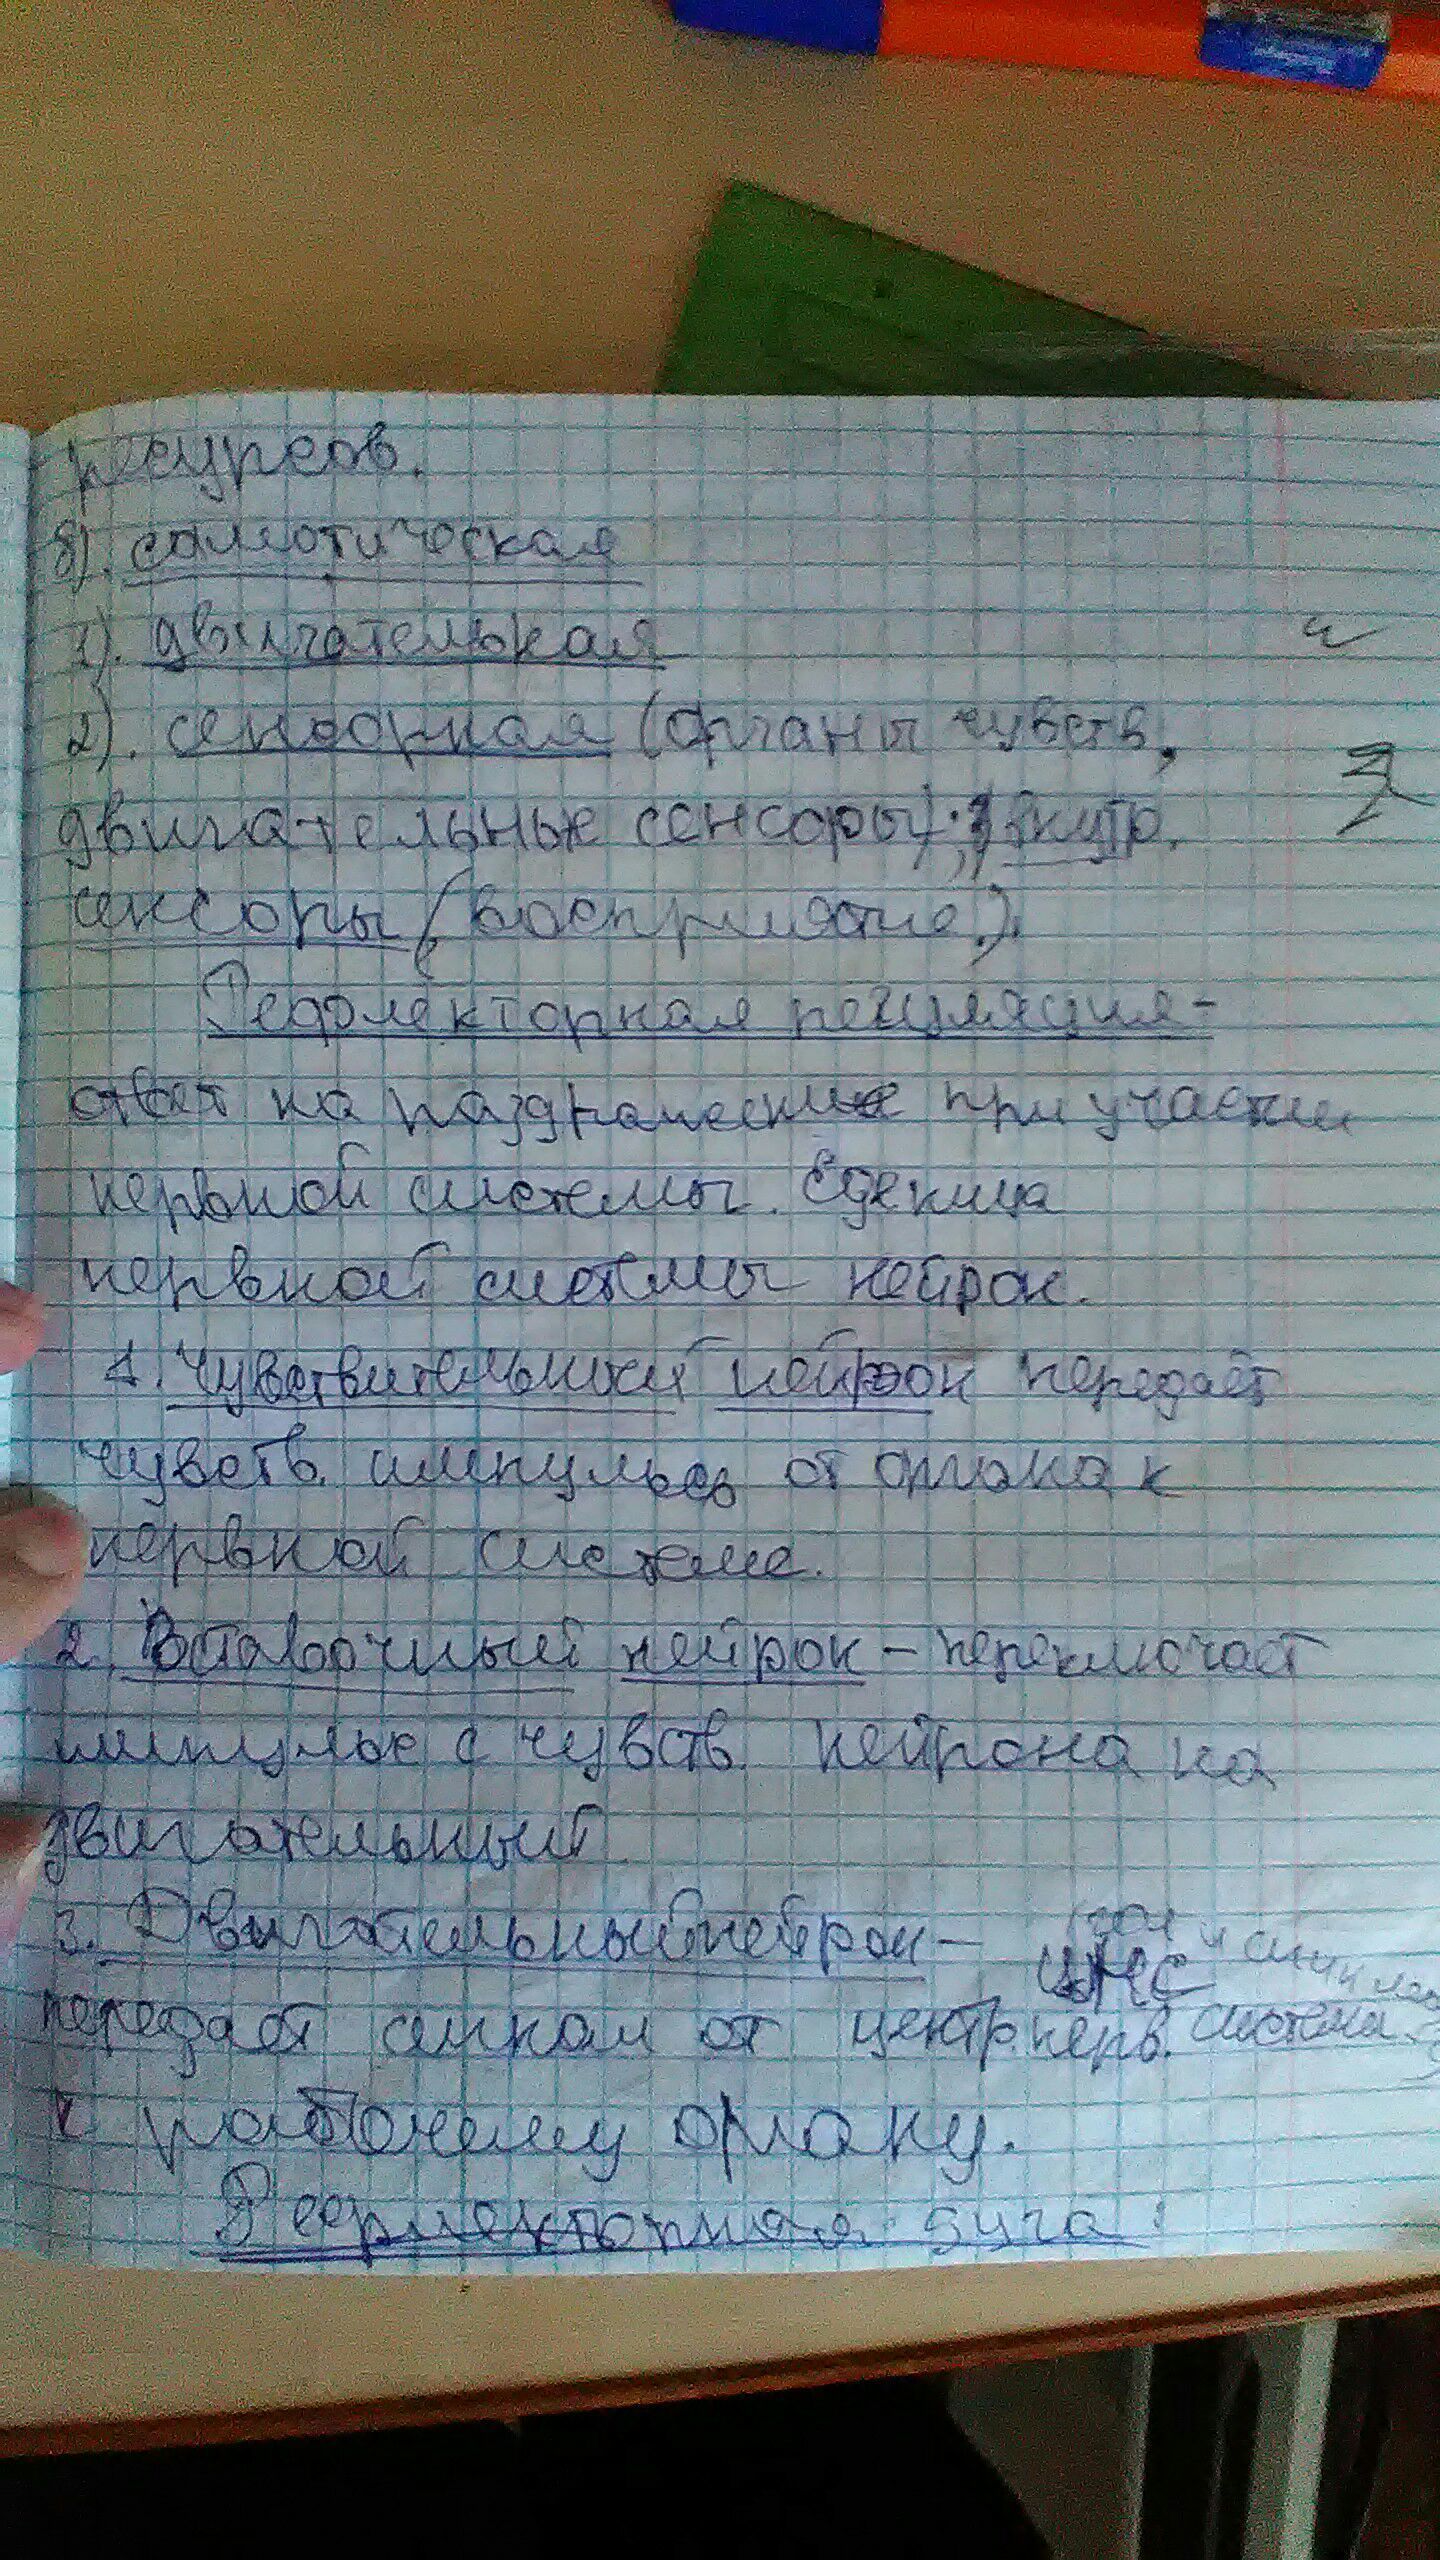 ресурсов.
б). соматическая
1). двигательная
2). сенсорная (органы чувств,
двигательные сенсоры); внутр.
сенсоры (восприятие).
Рефлекторная регуляция-
ответ на раздражение при участии
нервной системы. Единица
нервной системы нейрон.
1. Чувствительный нейрон передаёт
чувств. импульсь от органа к
нервной системе.
2. Вставочный нейрон – переключает
импульс с чувств. нейрона на
двигательный
3. Двигательный нейрон –
ЦНС
передаёт сигнал от центр. нерв. система
к рабочему органу.
Рефлекторная дуга: